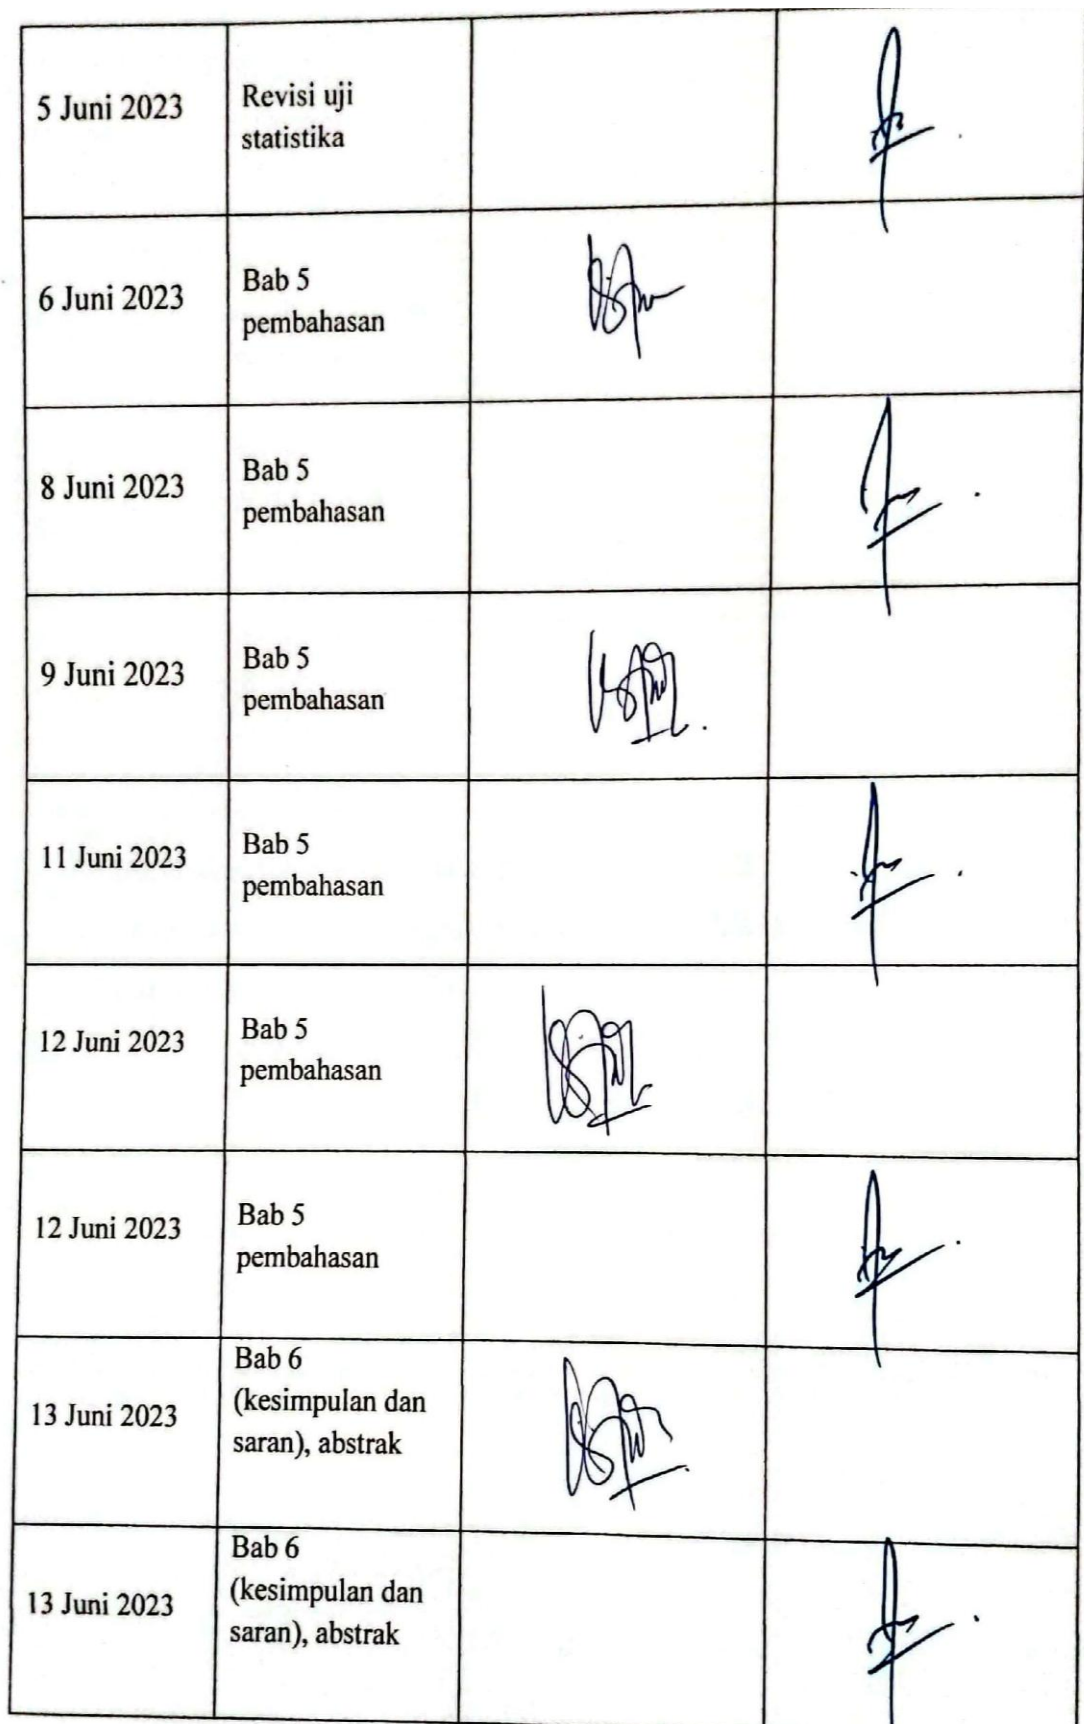 5 Juni 2023
Revisi uji
statistika
6 Juni 2023
Bab 5
pembahasan
8 Juni 2023
Bab 5
pembahasan
9 Juni 2023
Bab 5
pembahasan
11 Juni 2023
Bab 5
pembahasan
12 Juni 2023
Bab 5
pembahasan
12 Juni 2023
Bab 5
pembahasan
13 Juni 2023
Bab 6
(kesimpulan dan
saran), abstrak
13 Juni 2023
Bab 6
(kesimpulan dan
saran), abstrak